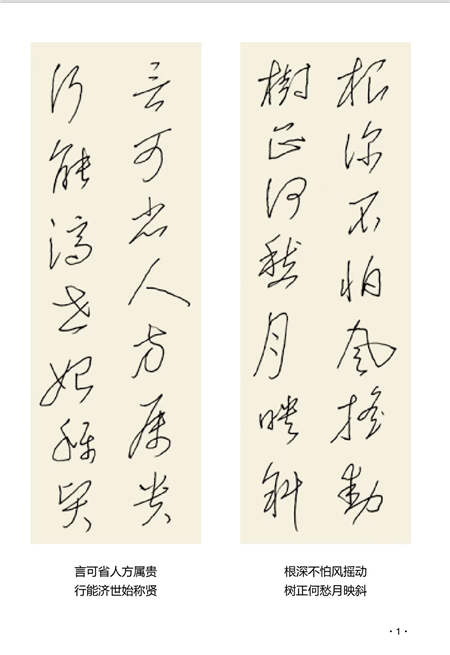 根深不怕风摇動
樹正何愁月映斜
言可省人方属贵
行能济世始称贤
言可省人方属贵
行能济世始称贤
根深不怕风摇动
树正何愁月映斜
·1·